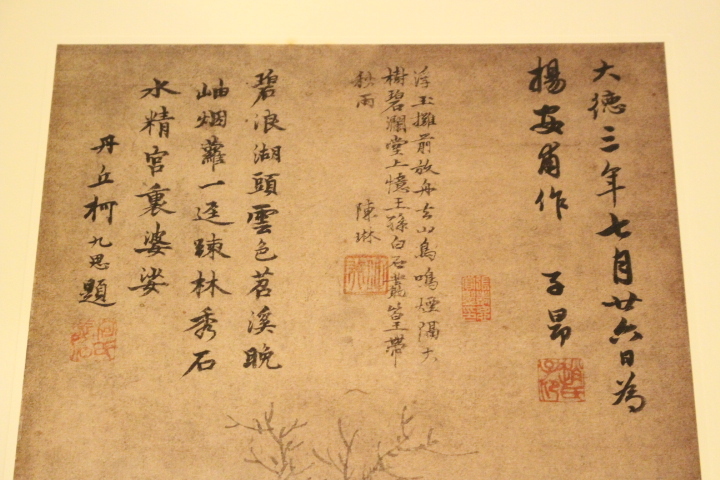 大德三年七月廿六日為
楊安甫作 子昂
浮玉攤前放舟去山鳥鳴煙隔大
樹碧瀾堂上憶王孫白石叢篁玉帶
秋雨 陳琳
碧浪湖頭雲色苕溪晚
岫烟蘿一逕踈林秀石
水精宮裏婆娑
丹丘柯九思題
趙氏子昂